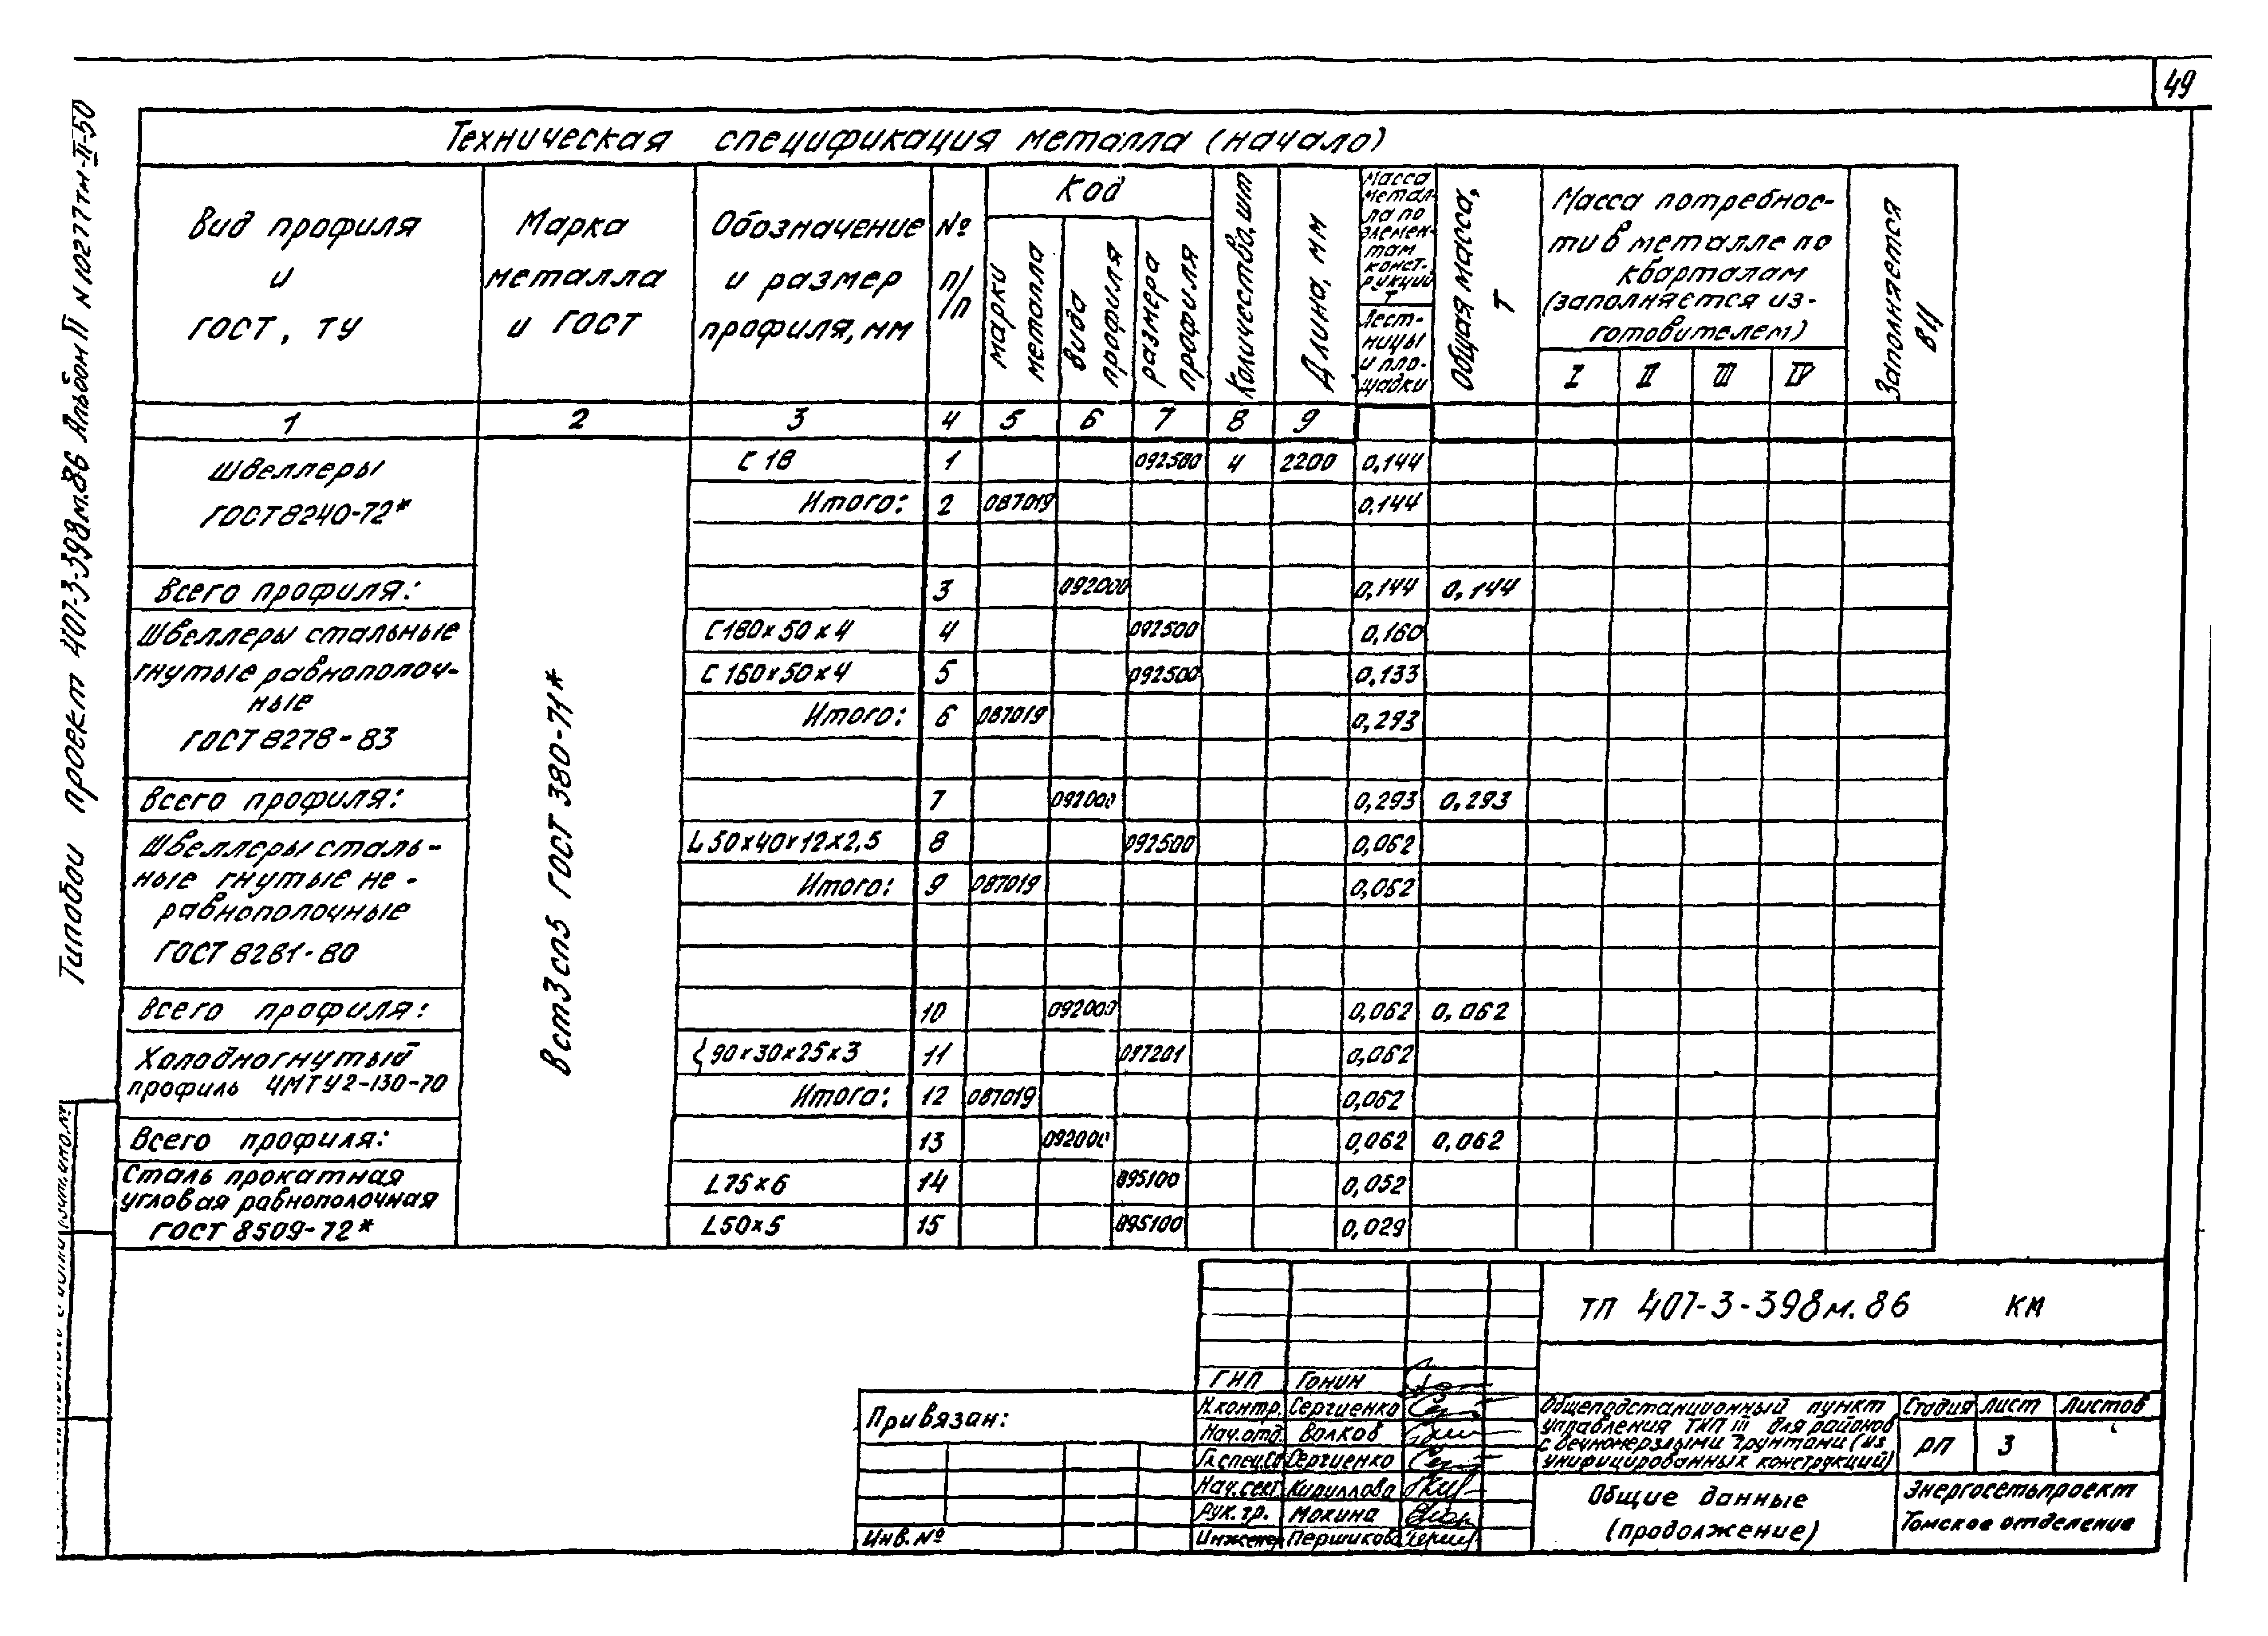 49
Типовой проект 407-3-398м.86 Альбом II N 10277тм-II-50
Техническая спецификация металла (начало)
Вид профиля
и
ГОСТ, ТУ
Марка
металла
и ГОСТ
Обозначение
и размер
профиля, мм
№
п/
/п
Код
марки
металла
вида
профиля
размера
профиля
Количество, шт
Длина, мм
Масса
метал-
ла по
элемен-
там
конст-
рукций
Т
Лест-
ницы
и пло-
щадки
Общая масса,
Т
Масса потребнос-
ти в металле по
кварталам
(заполняется из-
готовителем)
I II III IV
Заполняется
ВЦ
1 2 3 4 5 6 7 8 9
Швеллеры
ГОСТ 8240-72*
Вст3сп5 ГОСТ 380-71*
С 18 1 092500 4 2200 0,144
Итого: 2 087019 0,144
Всего профиля: 3 092000 0,144 0,144
Швеллеры стальные
гнутые равнополоч-
ные
ГОСТ 8278-83
С180х50х4 4 092500 0,160
С 160х50х4 5 092500 0,133
Итого: 6 087019 0,293
Всего профиля: 7 092000 0,293 0,293
Швеллеры сталь-
ные гнутые не-
равнополочные
ГОСТ 8281-80
L50х40х12х2,5 8 092500 0,062
Итого: 9 087019 0,062
Всего профиля: 10 092000 0,062 0,062
Холодногнутый
профиль ЧМТУ2-130-70
90х30х25х3 11 087201 0,062
Итого: 12 087019 0,062
Всего профиля: 13 092000 0,062 0,062
Сталь прокатная
угловая равнополочная
ГОСТ 8509-72*
L75х6 14 095100 0,052
L50х5 15 095100 0,029
ТП 407-3-398м.86 КМ
ГИП Гонин
Н.контр. Сергиенко
Нач.отд. Волков
Гл.спец.СО Сергиенко
Нач.сект. Кириллова
Рук.гр. Мокина
Инженер Першикова
Привязан:
Инв.№
Общеподстанционный пункт
управления ТИП III для районов
с вечномерзлыми грунтами (из
унифицированных конструкций)
Стадия Лист Листов
РП 3
Общие данные
(продолжение)
Энергосетьпроект
Томское отделение